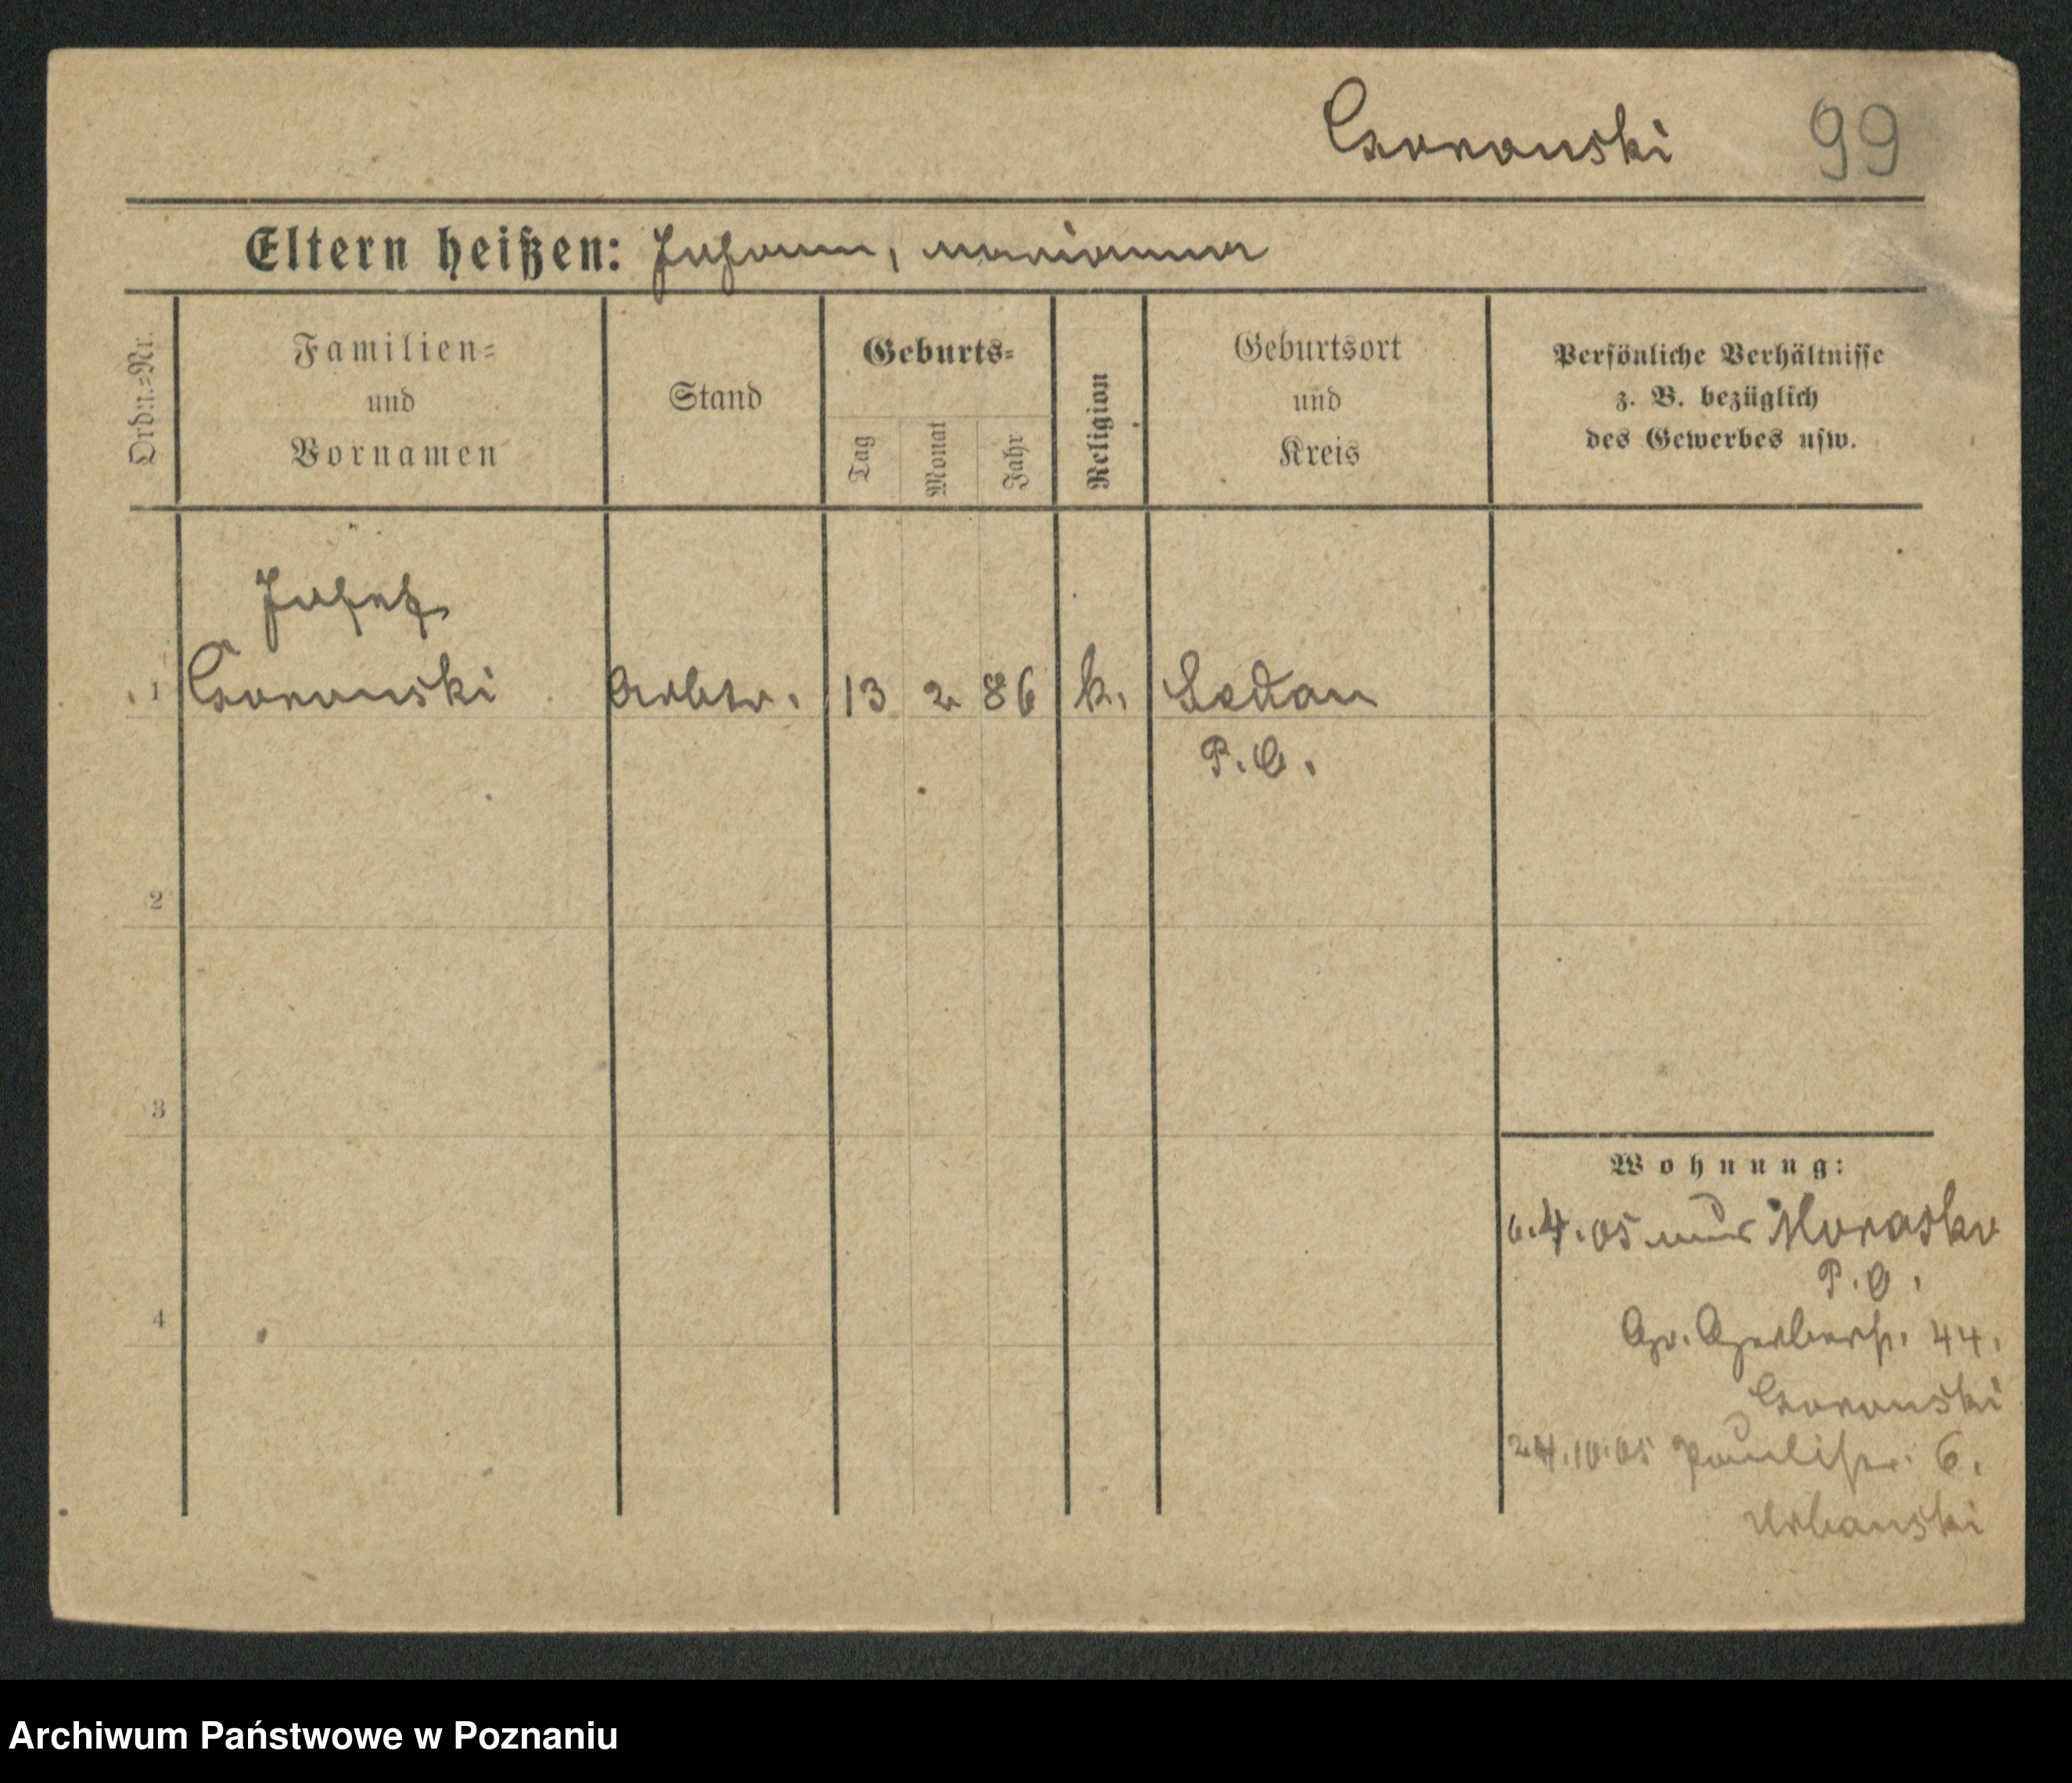 Czoronski 99
Eltern heißen: Johann, Marianna
Ordn.=Nr.
Familien=
und
Vornamen
Stand
Geburts=
Tag
Monat
Jahr
Religion
Geburtsort
und
Kreis
Persönliche Verhältnisse
z. B. bezüglich
des Gewerbes usw.
Josef
1 Czoronski Arbtr. 13 2 86 k. Sedan
P. O.
2
3
4
Wohnung:
6.4.05 aus Morasko
P. O.
Gr. Gerberstr. 44.
Czoronski
24.10.05 Paulistr. 6.
Urbanski
Archiwum Państwowe w Poznaniu